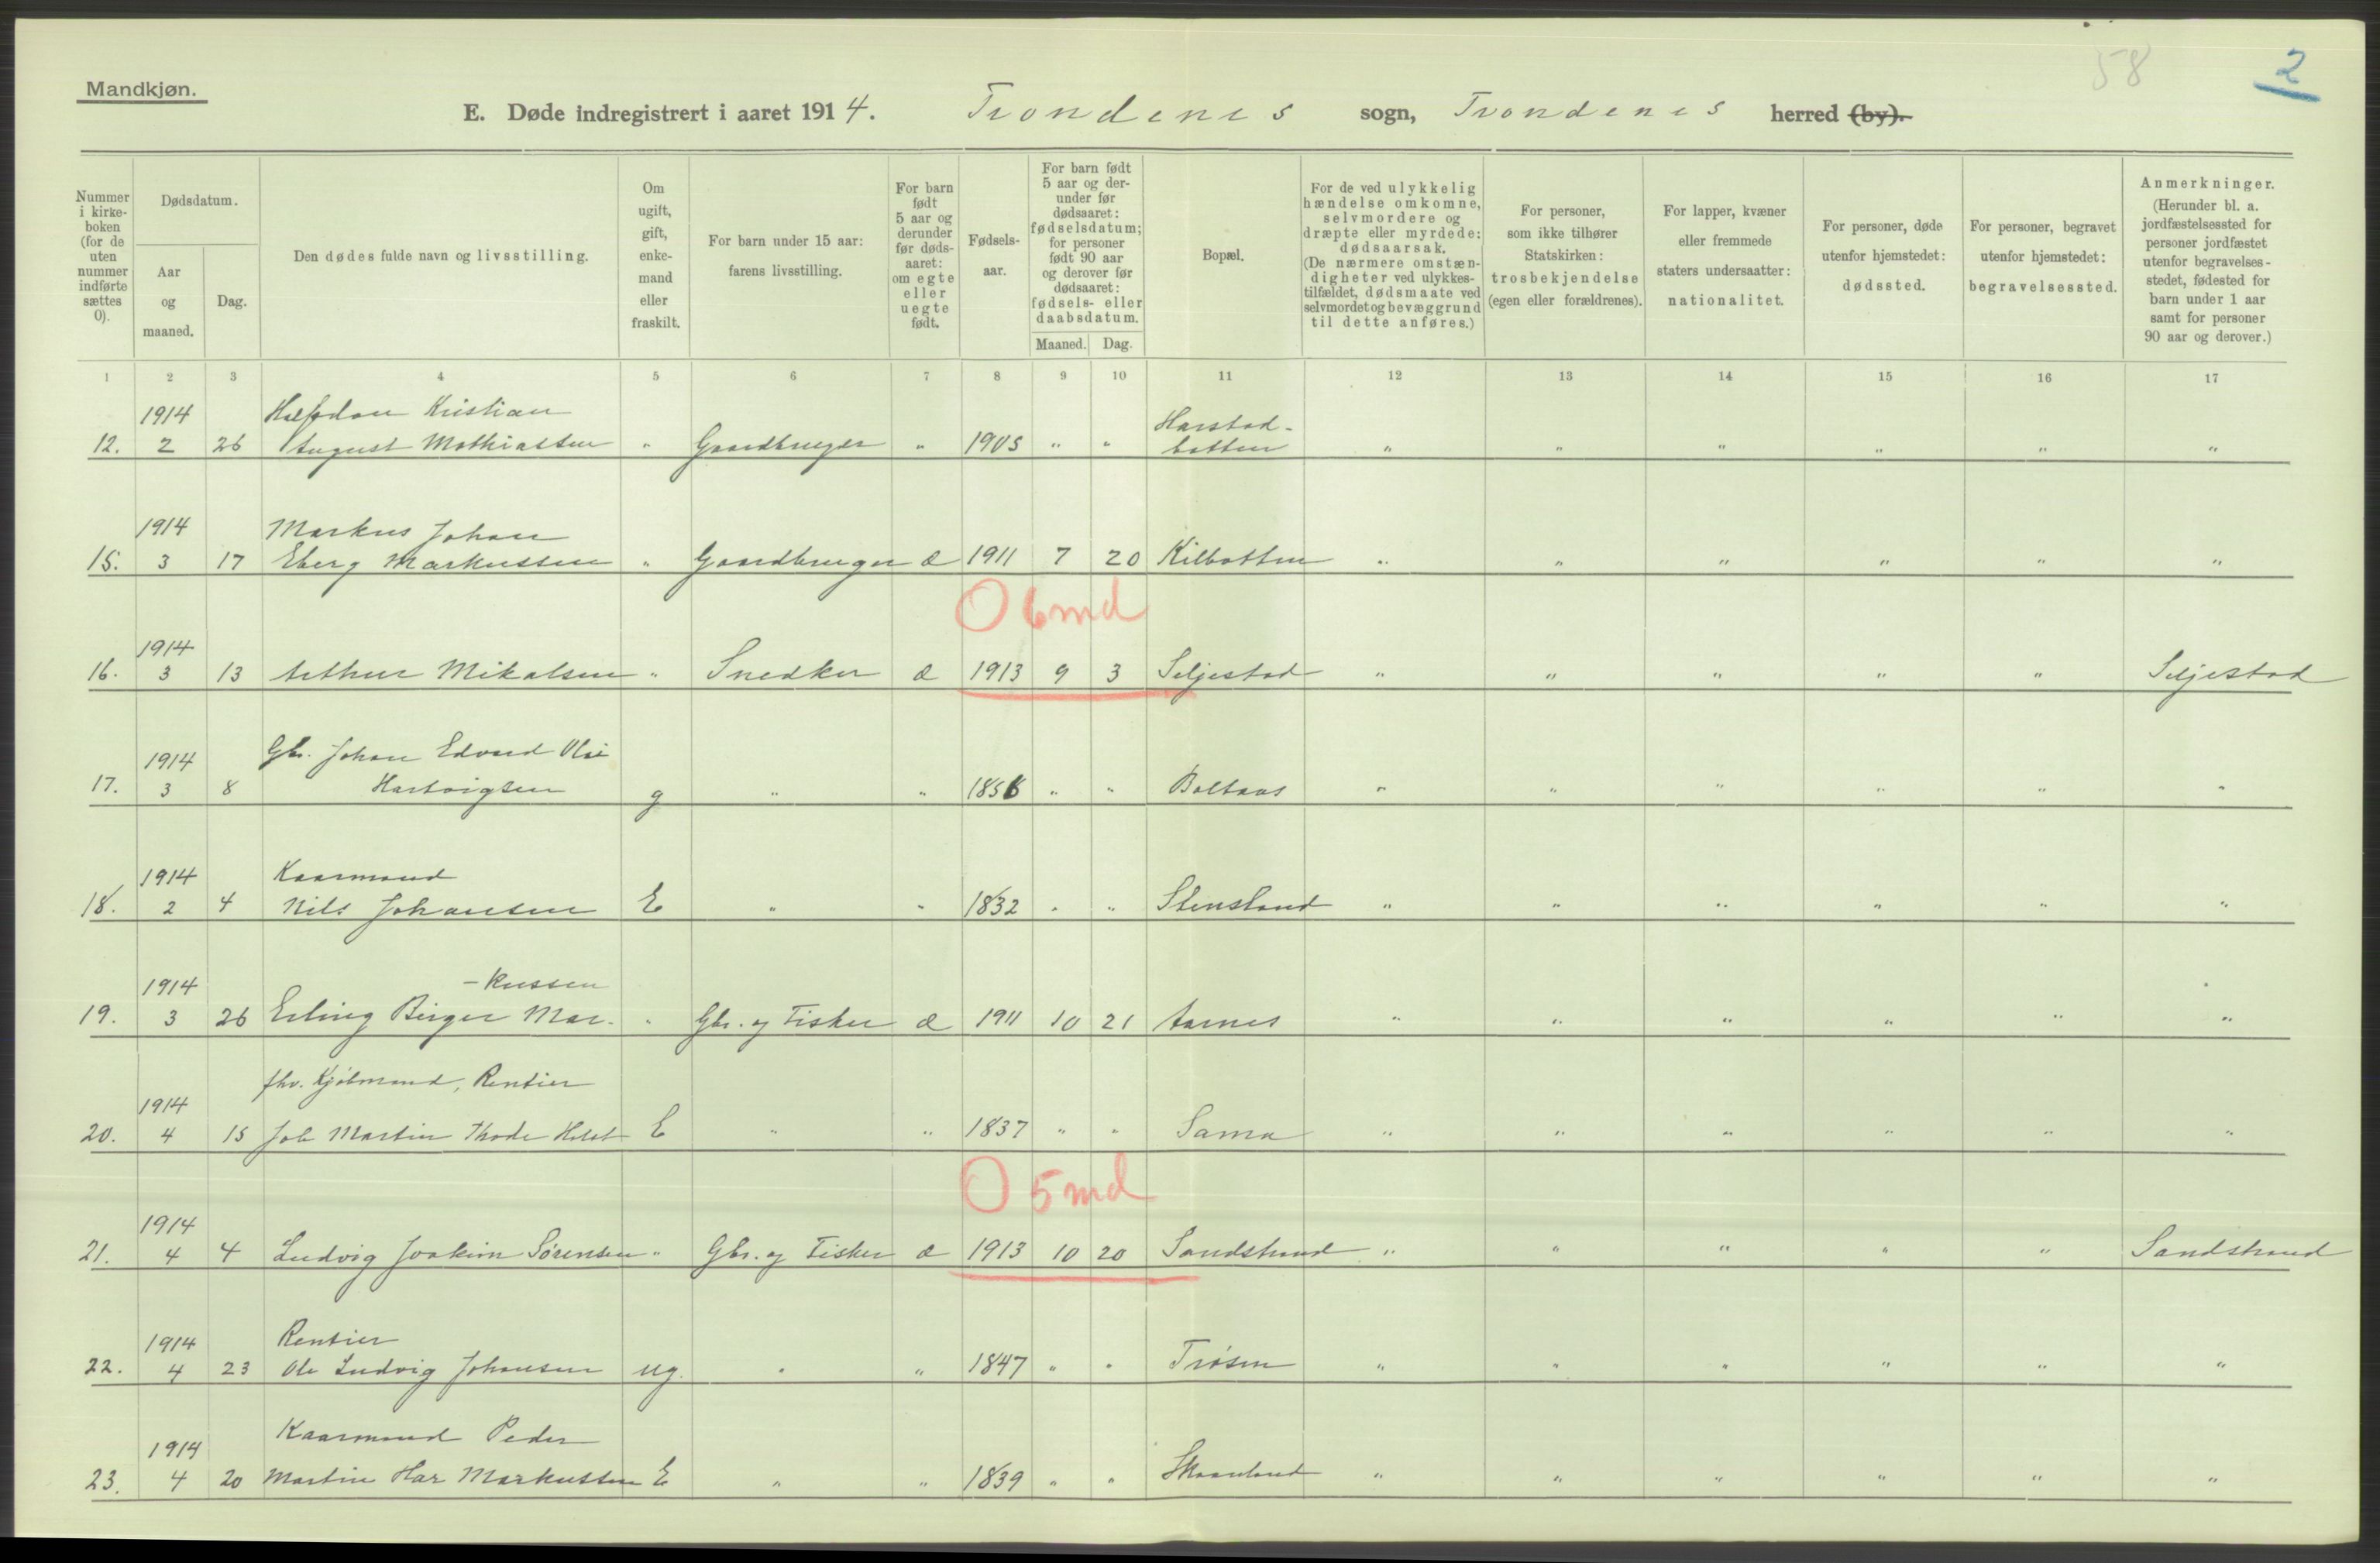 58
2
Mandkjøn.
E. Døde indregistrert i aaret 1914. Trondenes sogn, Trondenes herred (by).
Nummer
i kirke-
boken
(for de
uten
nummer
indførte
sættes
0).
Dødsdatum.
Aar
og
maaned.
Dag.
Den dødes fulde navn og livsstilling.
Om
ugift,
gift,
enke-
mand
eller
fraskilt.
For barn under 15 aar:
farens livsstilling.
For barn
født
5 aar og
derunder
før døds-
aaret:
om egte
eller
uegte
født.
Fødsels-
aar.
For barn født
5 aar og der-
under før
dødsaaret:
fødselsdatum;
for personer
født 90 aar
og derover før
dødsaaret:
fødsels- eller
daabsdatum.
Maaned. Dag.
Bopæl.
For de ved ulykkelig
hændelse omkomne,
selvmordere og
dræpte eller myrdede:
dødsaarsak.
(De nærmere omstæn-
digheter ved ulykkes-
tilfældet, dødsmaate ved
selvmordet og bevæggrund
til dette anføres.)
For personer,
som ikke tilhører
Statskirken:
trosbekjendelse
(egen eller forældrenes).
For lapper, kvæner
eller fremmede
staters undersaatter:
nationalitet.
For personer, døde
utenfor hjemstedet:
dødssted.
For personer, begravet
utenfor hjemstedet:
begravelsessted.
Anmerkninger.
(Herunder bl. a.
jordfæstelsessted for
personer jordfæstet
utenfor begravelses-
stedet, fødested for
barn under 1 aar
samt for personer
90 aar og derover.)
1 2 3 4 5 6 7 8 9 10 11 12 13 14 15 16 17
1914 Halfdan Kristian Harstad-
12. 2 26 August Mathiassen " Gaardbruger " 1905 " " botten " " " " " "
1914 Markus Johan
15. 3 17 Eberg Markussen " Gaardbruger æ 1911 7 20 Kilbotten " " " " " "
0 6 md
1914
16. 3 13 Arthur Mikalsen " Snedker æ 1913 9 3 Seljestad " " " " " Seljestad
1914 Gbr. Johan Edvard Olai
17. 3 8 Hartvigsen g " " 1856 " " Boltaas " " " " " "
1914 Kaarmand
18. 2 4 Nils Johansen E " " 1832 " " Stensland " " " " " "
1914 -kussen
19. 3 26 Erling Birger Mar- " Gbr. og Fisker æ 1911 10 21 Aarnes " " " " " "
fhv. Kjøbmand, Rentier
1914
20. 4 15 Joh Martin Thode Holst E " " 1837 " " Sama " " " " " "
0 5 md
1914
21. 4 4 Ludvig Joakim Sørensen " Gbr. og Fisker æ 1913 10 20 Sandstrand " " " " " Sandstrand
1914 Rentier
22. 4 23 Ole Ludvig Johansen ug. " " 1847 " " Trøsen " " " " " "
1914 Kaarmand Peder
23. 4 20 Martin Har Markussen E " " 1839 " " Skaanland " " " " " "